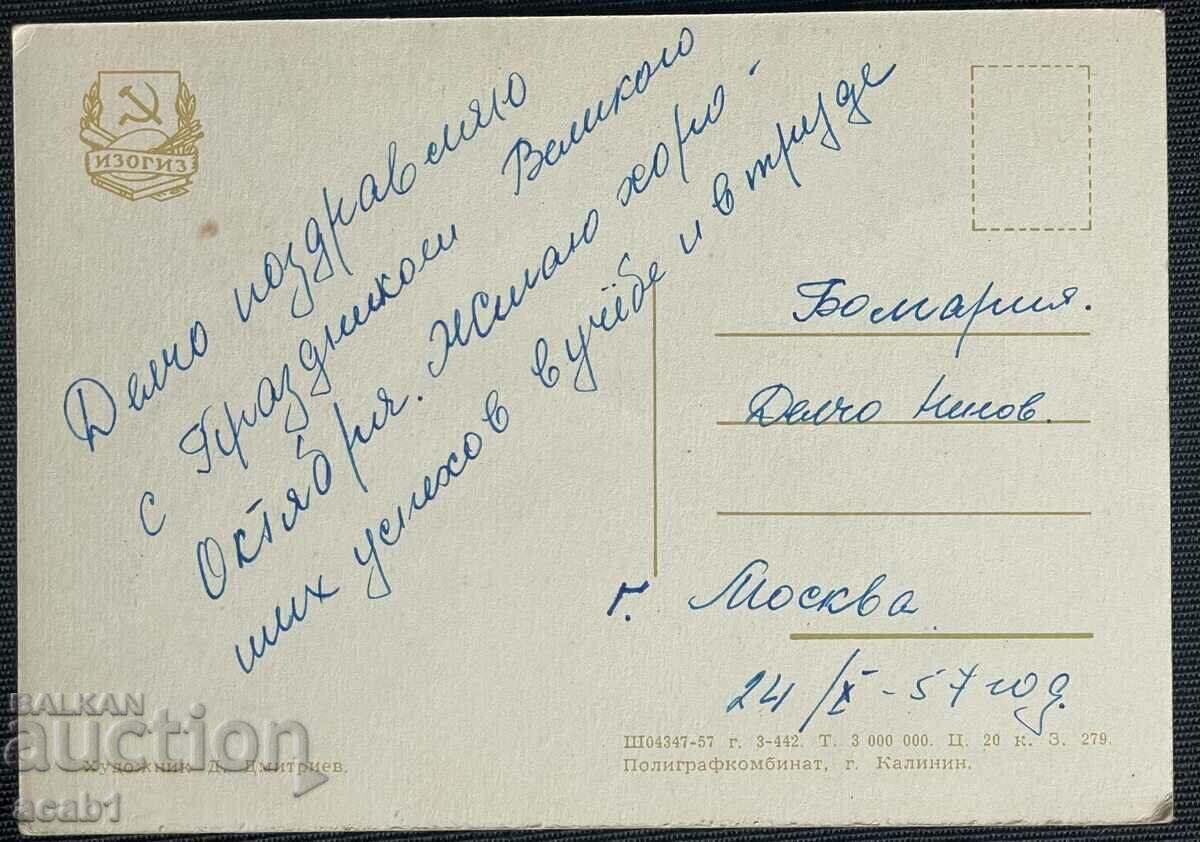 ИЗОГИЗ
Делчо поздравляю
с Праздником Великого
Октября. Желаю хоро-
ших успехов в учёбе и в труде
Болгария.
Делчо Нинов.
г. Москва
24/X-57 год.
Ш04347-57 г. З-442. Т. 3 000 000. Ц. 20 к. З. 279.
Полиграфкомбинат, г. Калинин.
Художник Д. Дмитриев.
BALKAN
auction
acab1